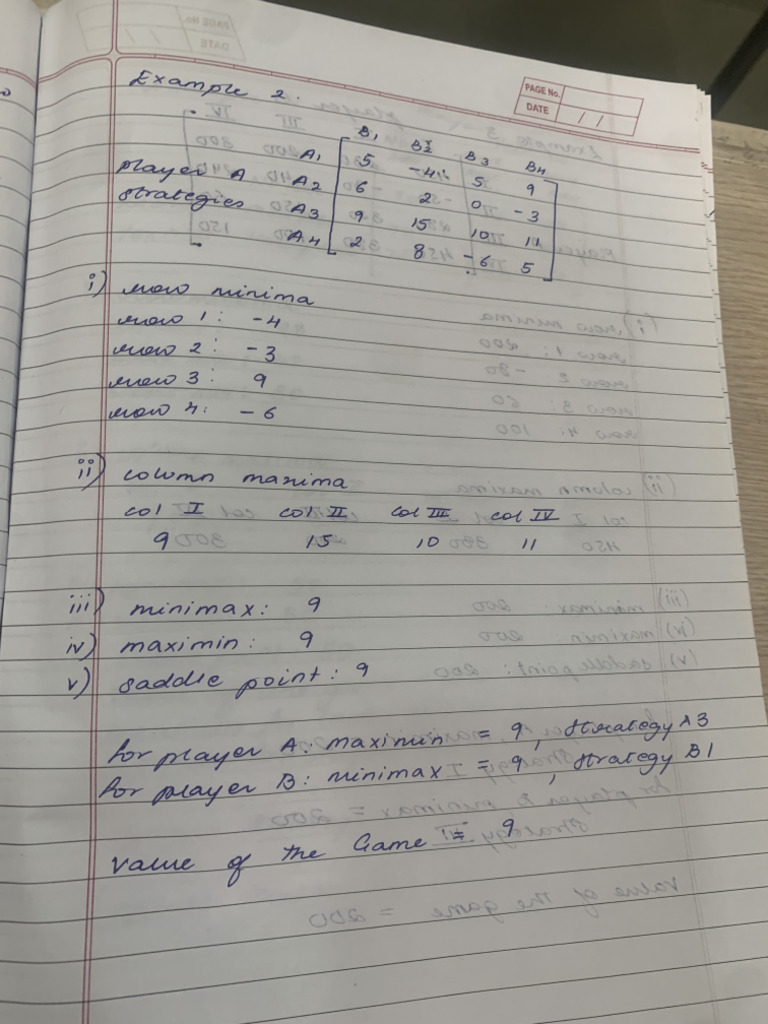 PAGE No.
DATE / /
Example 2.
B1 B2 B3 B4
A1 5 -4 5 9
player A A2 6 2 0 -3
strategies A3 9 15 10 11
A4 2 8 -6 5
i) row minima
row 1: -4
row 2: -3
row 3: 9
row 4: -6
ii) column maxima
col I col II col III col IV
9 15 10 11
iii) minimax: 9
iv) maximin: 9
v) saddle point: 9
for player A: maximin = 9, strategy A3
for player B: minimax = 9, strategy B1
value of the Game = 9